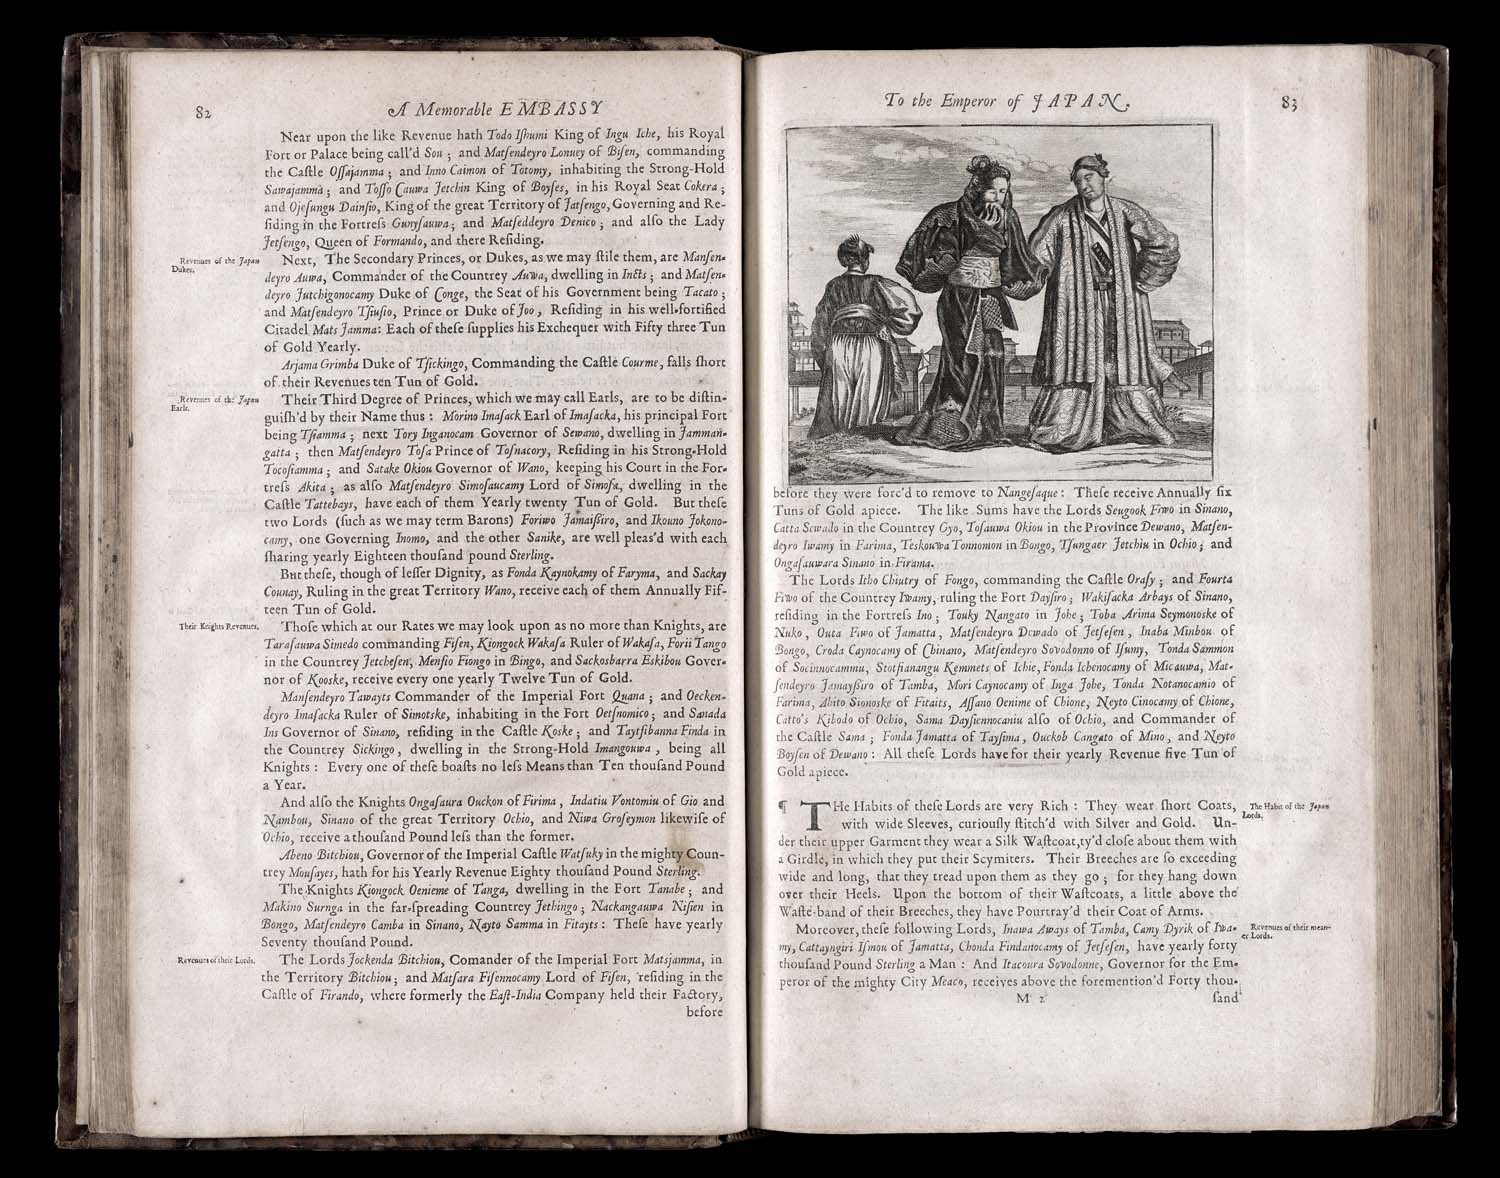 82
A Memorable EMBASSY
Near upon the like Revenue hath Todo Iſhumi King of Ingu Iche, his Royal
Fort or Palace being call'd Sou ; and Matſendeyro Lonuey of Biſen, commanding
the Caſtle Oſſajamma ; and Inno Caimon of Totomy, inhabiting the Strong-Hold
Sawajamma ; and Toſſo Cauwa Jetchin King of Boyſes, in his Royal Seat Cokera ;
and Ojeſungu Dainſio, King of the great Territory of Jatſengo, Governing and Re-
ſiding in the Fortreſs Gunyſauwa ; and Matſeddeyro Denico ; and alſo the Lady
Jetſengo, Queen of Formando, and there Reſiding.
Revenues of the Japan
Dukes.
Next, The Secondary Princes, or Dukes, as we may ſtile them, are Manſen-
deyro Auwa, Commander of the Countrey Auwa, dwelling in Incts ; and Matſen-
deyro Jutchigonocamy Duke of Conge, the Seat of his Government being Tacato ;
and Matſendeyro Tſiuſio, Prince or Duke of Joo, Reſiding in his well-fortified
Citadel Mats Jamma: Each of theſe ſupplies his Exchequer with Fifty three Tun
of Gold Yearly.
Arjama Grimba Duke of Tſickingo, Commanding the Caſtle Courme, falls ſhort
of their Revenues ten Tun of Gold.
Revenues of the Japan
Earls.
Their Third Degree of Princes, which we may call Earls, are to be diſtin-
guiſh'd by their Name thus : Morino Imaſack Earl of Imaſacka, his principal Fort
being Tſiamma ; next Tory Inganocam Governor of Sewano, dwelling in Jamman-
gatta ; then Matſendeyro Toſa Prince of Toſnacory, Reſiding in his Strong-Hold
Tocoſtamma ; and Satake Okiou Governor of Wano, keeping his Court in the For-
treſs Akita ; as alſo Matſendeyro Simoſaucamy Lord of Simoſa, dwelling in the
Caſtle Tattebays, have each of them Yearly twenty Tun of Gold. But theſe
two Lords (ſuch as we may term Barons) Foriwo Jamaiſſiro, and Ikouno Jokono-
camy, one Governing Inomo, and the other Sanike, are well pleas'd with each
ſharing yearly Eighteen thouſand pound Sterling.
But theſe, though of leſſer Dignity, as Fonda Kaynokamy of Faryma, and Sackay
Counay, Ruling in the great Territory Wano, receive each of them Annually Fif-
teen Tun of Gold.
Their Knights Revenues.
Thoſe which at our Rates we may look upon as no more than Knights, are
Taraſauwa Simedo commanding Fiſen, Kiongock Wakaſa Ruler of Wakaſa, Forii Tango
in the Countrey Jetcheſen, Menſio Fiongo in Bingo, and Sackosbarra Eskibou Gover-
nor of Kooske, receive every one yearly Twelve Tun of Gold.
Manſendeyro Tawayts Commander of the Imperial Fort Quana ; and Oecken-
deyro Imaſacka Ruler of Simotske, inhabiting in the Fort Oetſnomico ; and Sanada
Ins Governor of Sinano, reſiding in the Caſtle Koske ; and Taytſibanna Finda in
the Countrey Sickingo, dwelling in the Strong-Hold Imangouwa, being all
Knights : Every one of theſe boaſts no leſs Means than Ten thouſand Pound
a Year.
And alſo the Knights Ongaſaura Ouckon of Firima, Indatiu Vontomiu of Gio and
Nambou, Sinano of the great Territory Ochio, and Niwa Groſeymon likewiſe of
Ochio, receive a thouſand Pound leſs than the former.
Abeno Bitchiou, Governor of the Imperial Caſtle Watſuky in the mighty Coun-
trey Mouſayes, hath for his Yearly Revenue Eighty thouſand Pound Sterling.
The Knights Kiongock Oenieme of Tanga, dwelling in the Fort Tanabe ; and
Makino Surnga in the far-ſpreading Countrey Jethingo ; Nackangauwa Niſien in
Bongo, Matſendeyro Camba in Sinano, Nayto Samma in Fitayts : Theſe have yearly
Seventy thouſand Pound.
Revenues of their Lords.
The Lords Jockenda Bitchiou, Comander of the Imperial Fort Matsjamma, in
the Territory Bitchiou ; and Matſara Fiſennocamy Lord of Fiſen, reſiding in the
Caſtle of Firando, where formerly the Eaſt-India Company held their Factory,
before
To the Emperor of JAPAN.
83
before they were forc'd to remove to Nangeſaque : Theſe receive Annually ſix
Tuns of Gold apiece. The like Sums have the Lords Seugook Fiwo in Sinano,
Catta Sewado in the Countrey Gyo, Toſauwa Okiou in the Province Dewano, Matſen-
deyro Iwamy in Farima, Teskouwa Tonnomon in Bongo, Tſungaer Jetchiu in Ochio ; and
Ongaſauwara Sinano in Firama.
The Lords Itho Chiutry of Fongo, commanding the Caſtle Oraſy ; and Fourta
Fiwo of the Countrey Iwamy, ruling the Fort Dayſiro ; Wakiſacka Arbays of Sinano,
reſiding in the Fortreſs Ino ; Touky Nangato in Johe ; Toba Arima Seymonoske of
Nuko, Outa Fiwo of Jamatta, Matſendeyro Dewado of Jetſeſen, Inaba Minbou of
Bongo, Croda Caynocamy of Chinano, Matſendeyro Sovodonno of Iſumy, Tonda Sammon
of Socinnocammu, Stotfianangu Kemmets of Ichie, Fonda Ichenocamy of Micauwa, Mat-
ſendeyro Jamayſſiro of Tamba, Mori Caynocamy of Inga Johe, Tonda Notanocamio of
Farima, Ahito Sionoske of Fitaits, Aſſano Oenime of Chione, Neyto Cinocamy of Chione,
Catto's Kibodo of Ochio, Sama Dayſiennocaniu alſo of Ochio, and Commander of
the Caſtle Sama ; Fonda Jamatta of Tayſima, Ouckob Cangato of Mino, and Neyto
Boyſen of Dewano : All theſe Lords have for their yearly Revenue five Tun of
Gold apiece.
¶ THe Habits of theſe Lords are very Rich : They wear ſhort Coats,
The Habit of the Japan
Lords.
with wide Sleeves, curiouſly ſtitch'd with Silver and Gold. Un-
der their upper Garment they wear a Silk Waſtcoat, ty'd cloſe about them with
a Girdle, in which they put their Scymiters. Their Breeches are ſo exceeding
wide and long, that they tread upon them as they go ; for they hang down
over their Heels. Upon the bottom of their Waſtcoats, a little above the
Waſte-band of their Breeches, they have Pourtray'd their Coat of Arms.
Moreover, theſe following Lords, Inawa Aways of Tamba, Camy Dyrik of Iwa-
Revenues of their mean-
er Lords.
my, Cattayngiri Iſmou of Jamatta, Chonda Findanocamy of Jetſeſen, have yearly forty
thouſand Pound Sterling a Man : And Itacoura Sovodonne, Governor for the Em-
peror of the mighty City Meaco, receives above the foremention'd Forty thou-
M 2
ſand